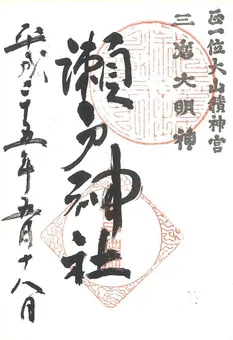 正一位大山積神宮
三嶋大明神
瀬戸神社
平成二十五年五月十八日